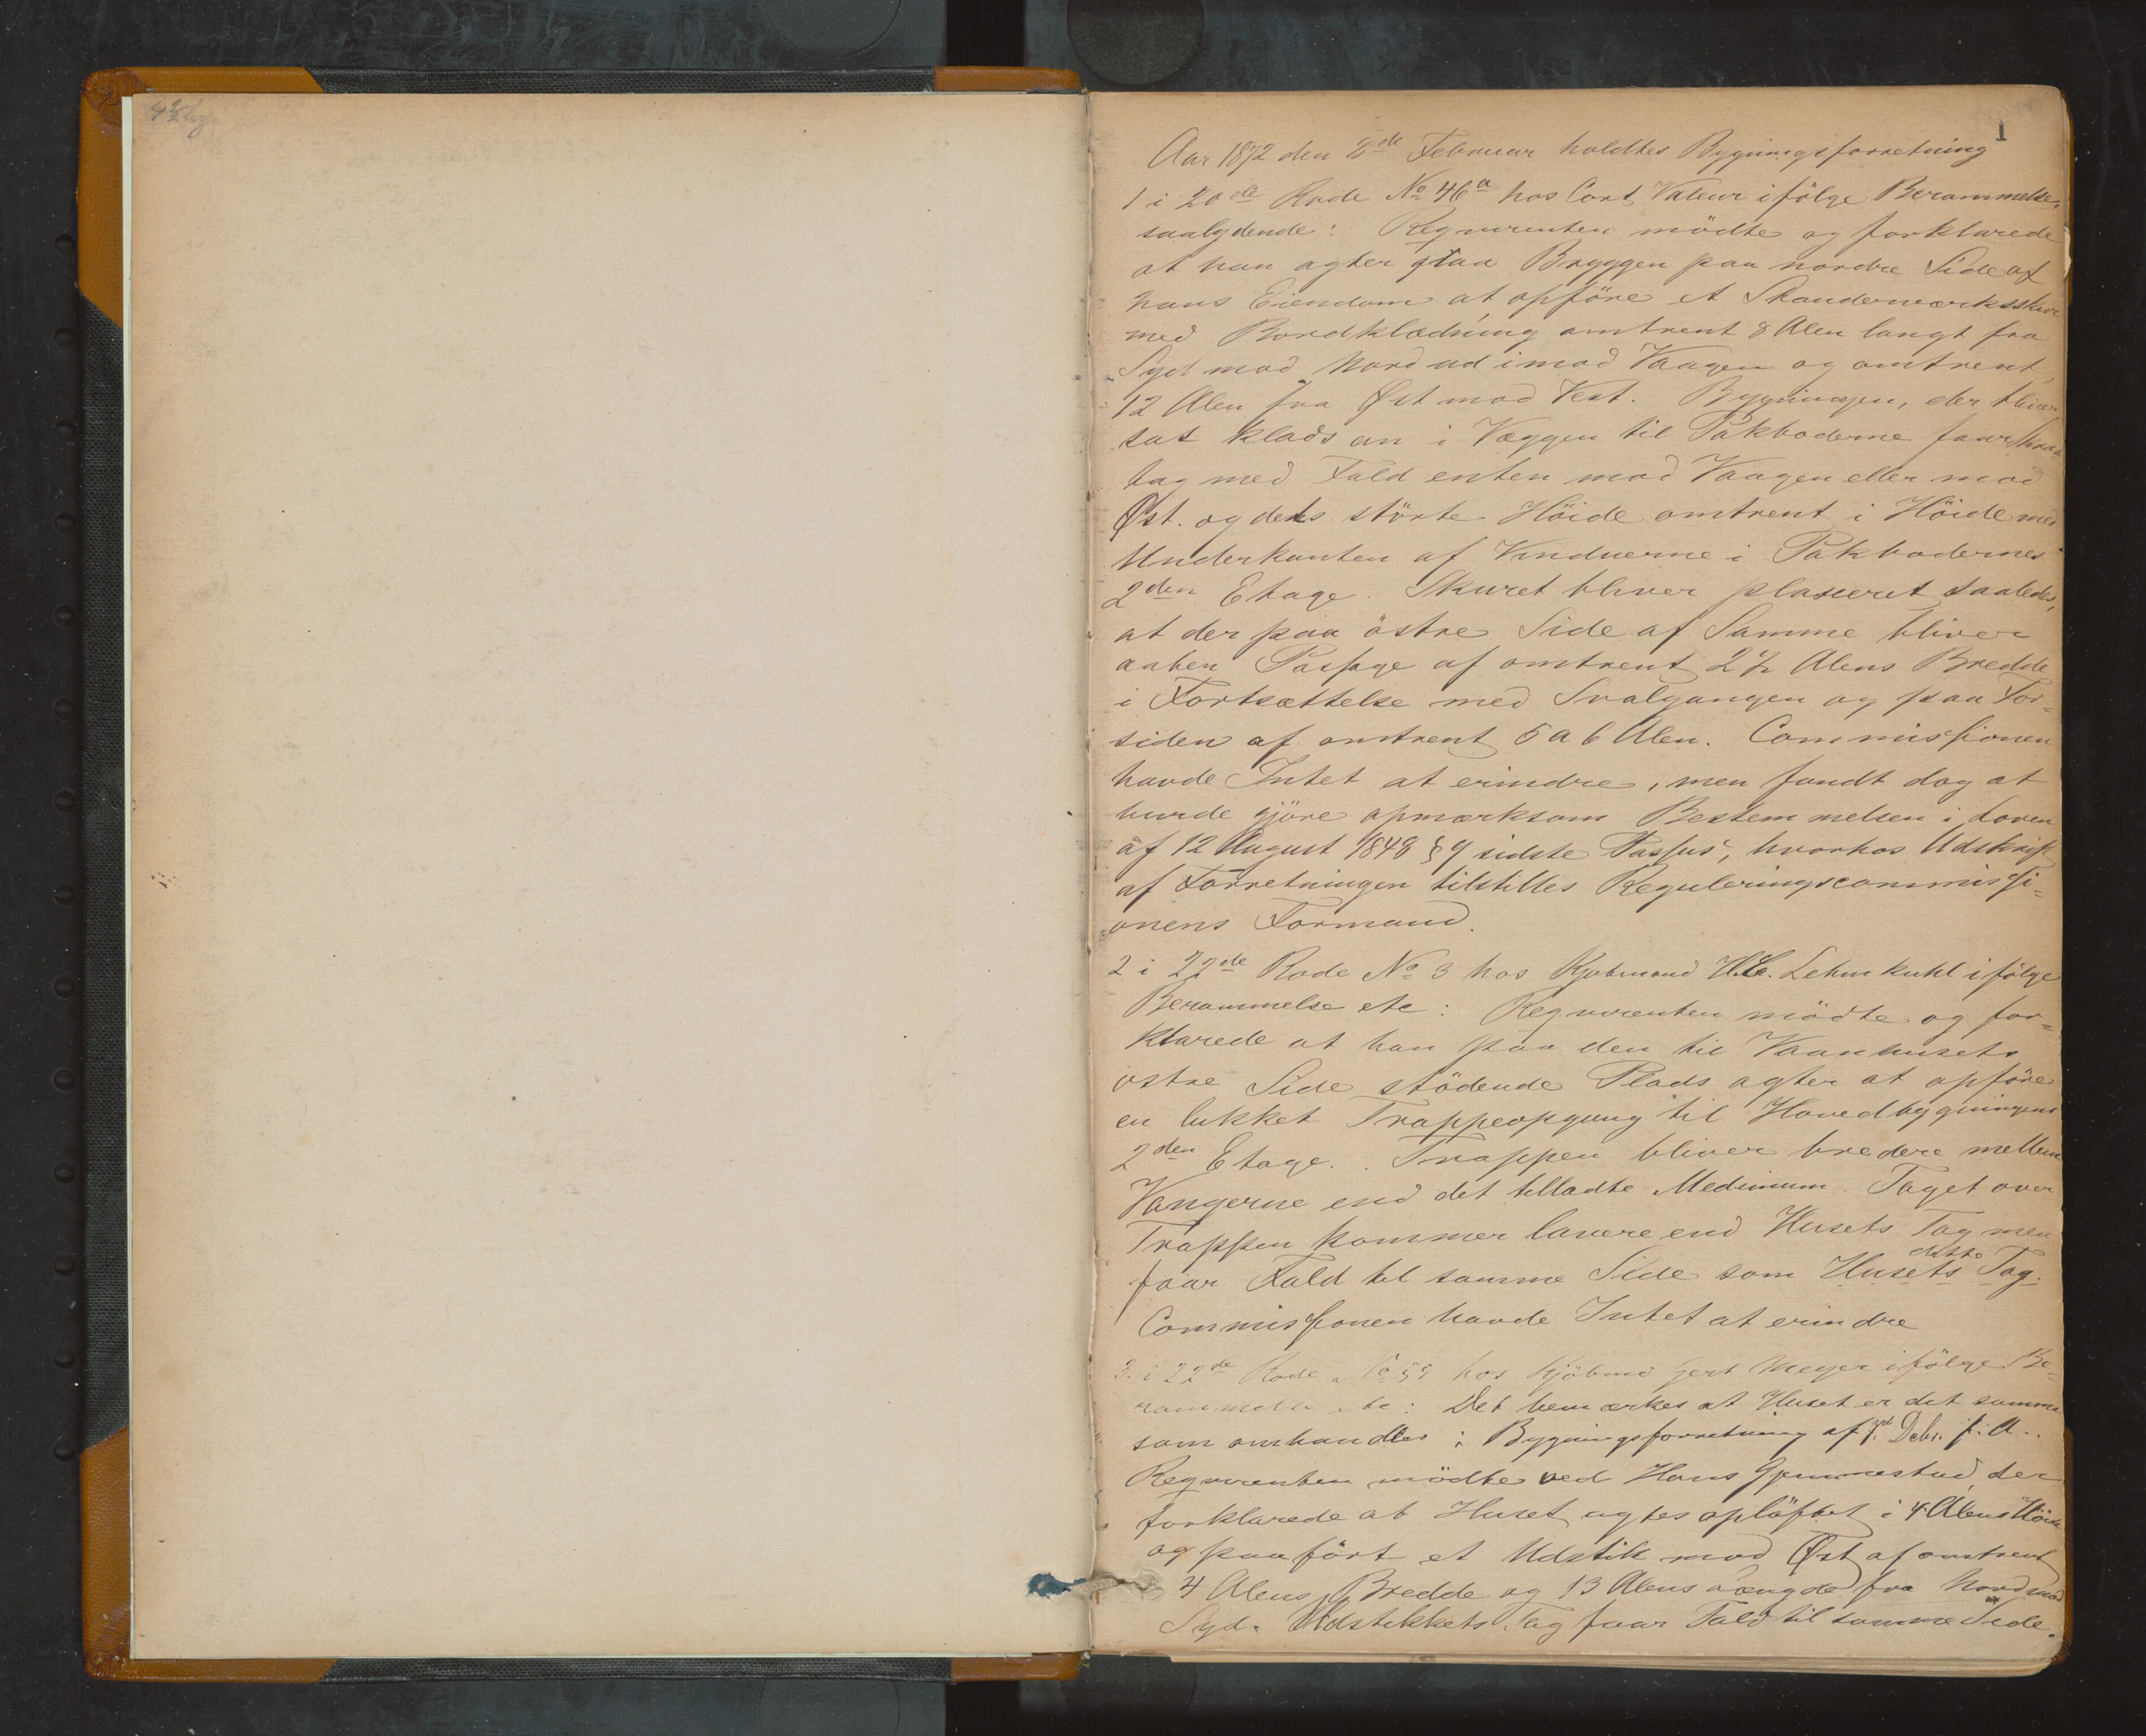 1
Aar 1872 den 2de Februar holdtes Bygningsforretning
1 i 20de Rode No 46a hos Cort Valeur ifölge Berammelse,
saalydende: Reqvirenten mödte og forklarede
at han agter paa Bryggen paa nordre Side af
hans Eiendom at opföre et Standerværksskur
med Bordklædning omtrent 8 Alen langt fra
Syd mod Nord ud imod Vaagen og omtrent
12 Alen fra Øst mod Vest. Bygningen, der bliver
sat klods an i Væggen til Pakboderne faar Skraa-
tag med Fald enten mod Vaagen eller mod
Øst. og dets störte Höide omtrent i Höide med
Underkanten af Vinduerne i Pakbodernes
2den Etage. Skuret bliver plaseret saaledes,
at der paa östre Side af Samme bliver
aaben Passage af omtrent 2½ Alens Bredde
i Fortsættelse med Svalgangen og paa For-
siden af omtrent 5 a 6 Alen. Commissionen
havde Intet at erindre, men fandt dog at
burde gjöre opmærksom Bestemmelsen i Loven
af 12 August 1848 § 9 sidste Passus, hvorhos Udskrift
af Forretningen tilstilles Reguleringscommissi-
onens Formand.
2 i 22de Rode No 3 hos Kjobmand Lehmkuhl ifölge
Berammelse etc: Reqvirenten mödte og for-
klarede at han paa den til Vaanhusets
ostre Side stödende Plads agter at opföre
en lukket Trappeopgang til Hovedbygningens
2den Etage. Trappen bliver bredere mellem
Vangerne end det tilladte Medinium. Taget over
Trappen kommer lavere end Husets Tag men
faar Fald til samme Side som Husets Tag.
dette
Commissionen havde Intet at erindre
3. i 22de Rode No 59 hos Kjöbmd Gert Meyer ifölge Be-
rammelse etc: Det bemærkes at Huset er det samme
som omhandles i Bygningsforretning af Debr. f. A.
Reqvirenten mödte ved Hans Gjemmestad der
forklarede at Huset agtes oplöftet i 4 Alens Höide
og paafört et Udstik mod Øst af omtrent
4 Alens Bredde og 13 Alens Længde fra Nord mod
Syd. Udstikkets Tag faar Fald til samme Side.